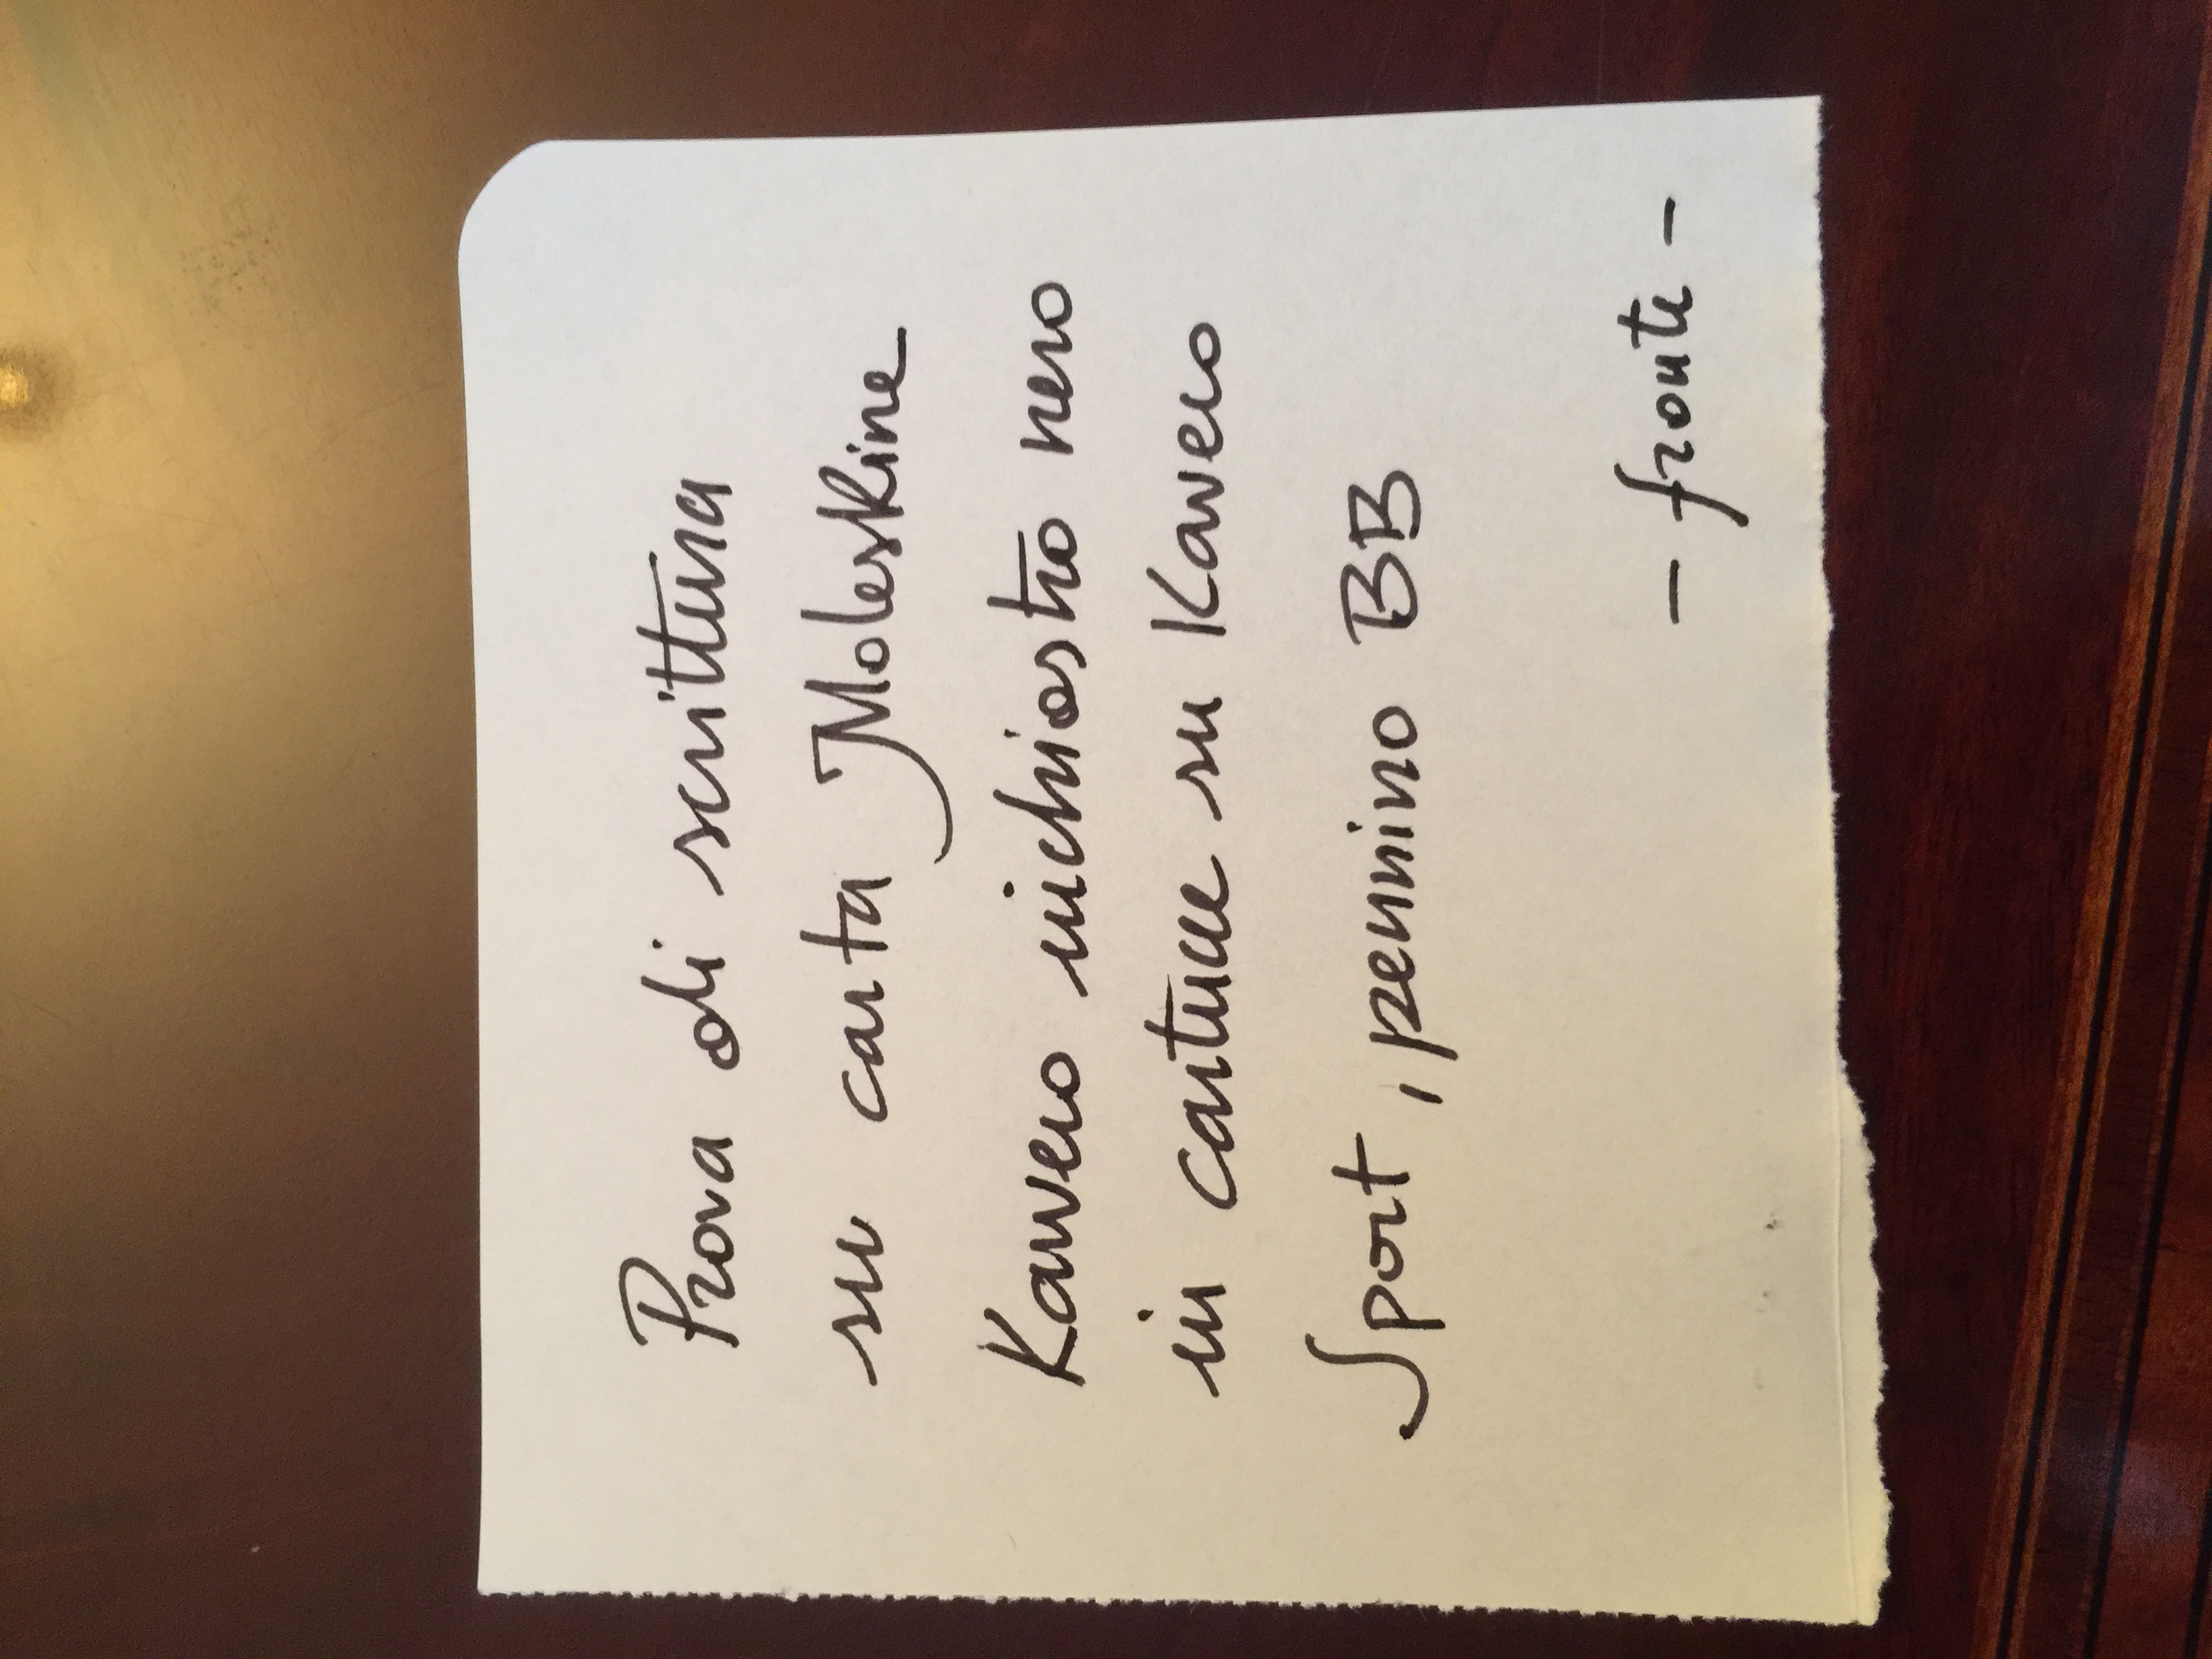 Prova di scrittura
su carta Moleskine
Kaweco inchiostro nero
in cartucce su Kaweco
Sport, pennino BB
- fronte -